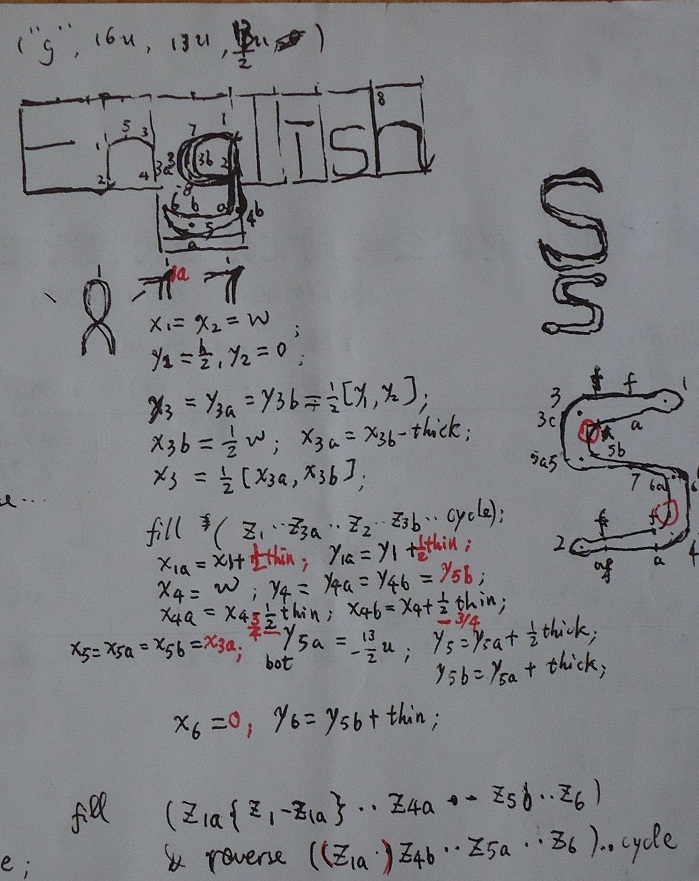 ("g", 16u, 13u, 13/2 u )
English
x₁ = x₂ = w ;
y₁ = h/2, y₂ = 0 ;
y₃ = y₃a = y₃b = ½[y₁, y₂];
x₃b = ½w; x₃a = x₃b - thick;
x₃ = ½[x₃a, x₃b];
fill (z₁..z₃a..z₂..z₃b..cycle);
x₁a = x₁+½thin; y₁a = y₁+½thin;
x₄ = w; y₄ = y₄a = y₄b = y₅b;
x₄a = x₄ - ¾ thin; x₄b = x₄+½ thin; -3/4
x₅ = x₅a = x₅b = x₃a; bot y₅a = -13/2 u; y₅ = y₅a + ½thick;
y₅b = y₅a + thick;
x₆ = 0; y₆ = y₅b + thin;
fill (z₁a{z₁-z₁a}..z₄a..z₅b..z₆)
& reverse ((z₁a.)z₄b..z₅a..z₆)..cycle
e;